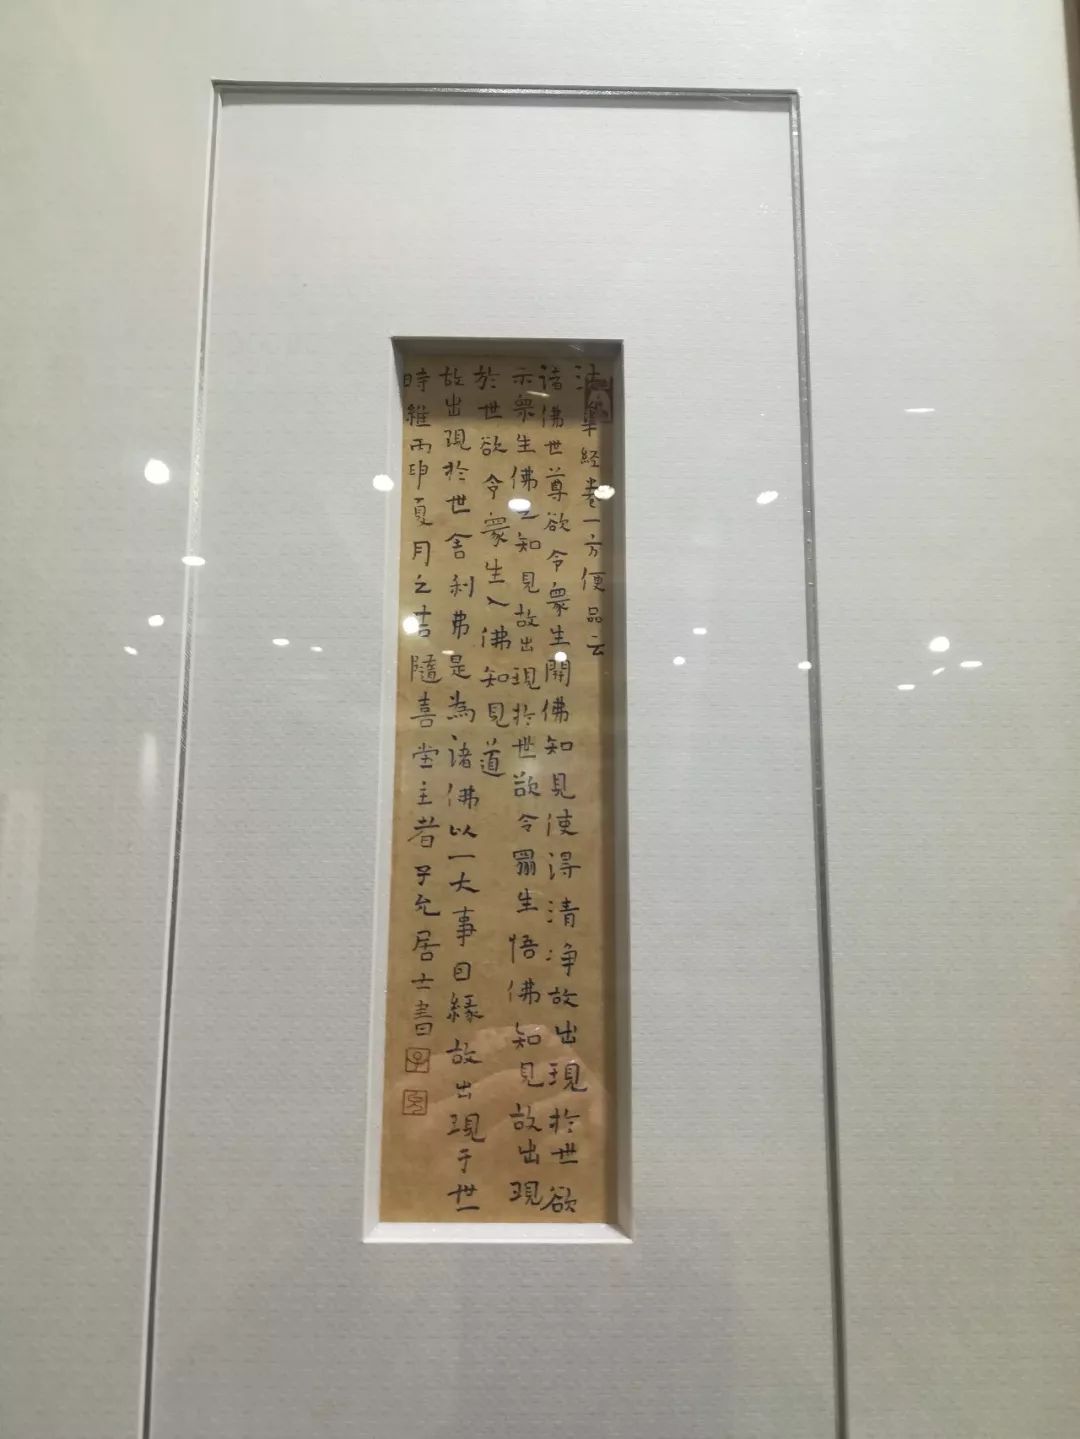 法華経卷一方便品云
諸佛世尊欲令衆生開佛知見使得清净故出現於世欲
示衆生佛之知見故出現於世欲令衆生悟佛知見故出現
於世欲令衆生入佛知見道
故出現於世舍利弗是為諸佛以一大事因緣故出現于世
時維丙申夏月之吉隨喜堂主者子允居士書